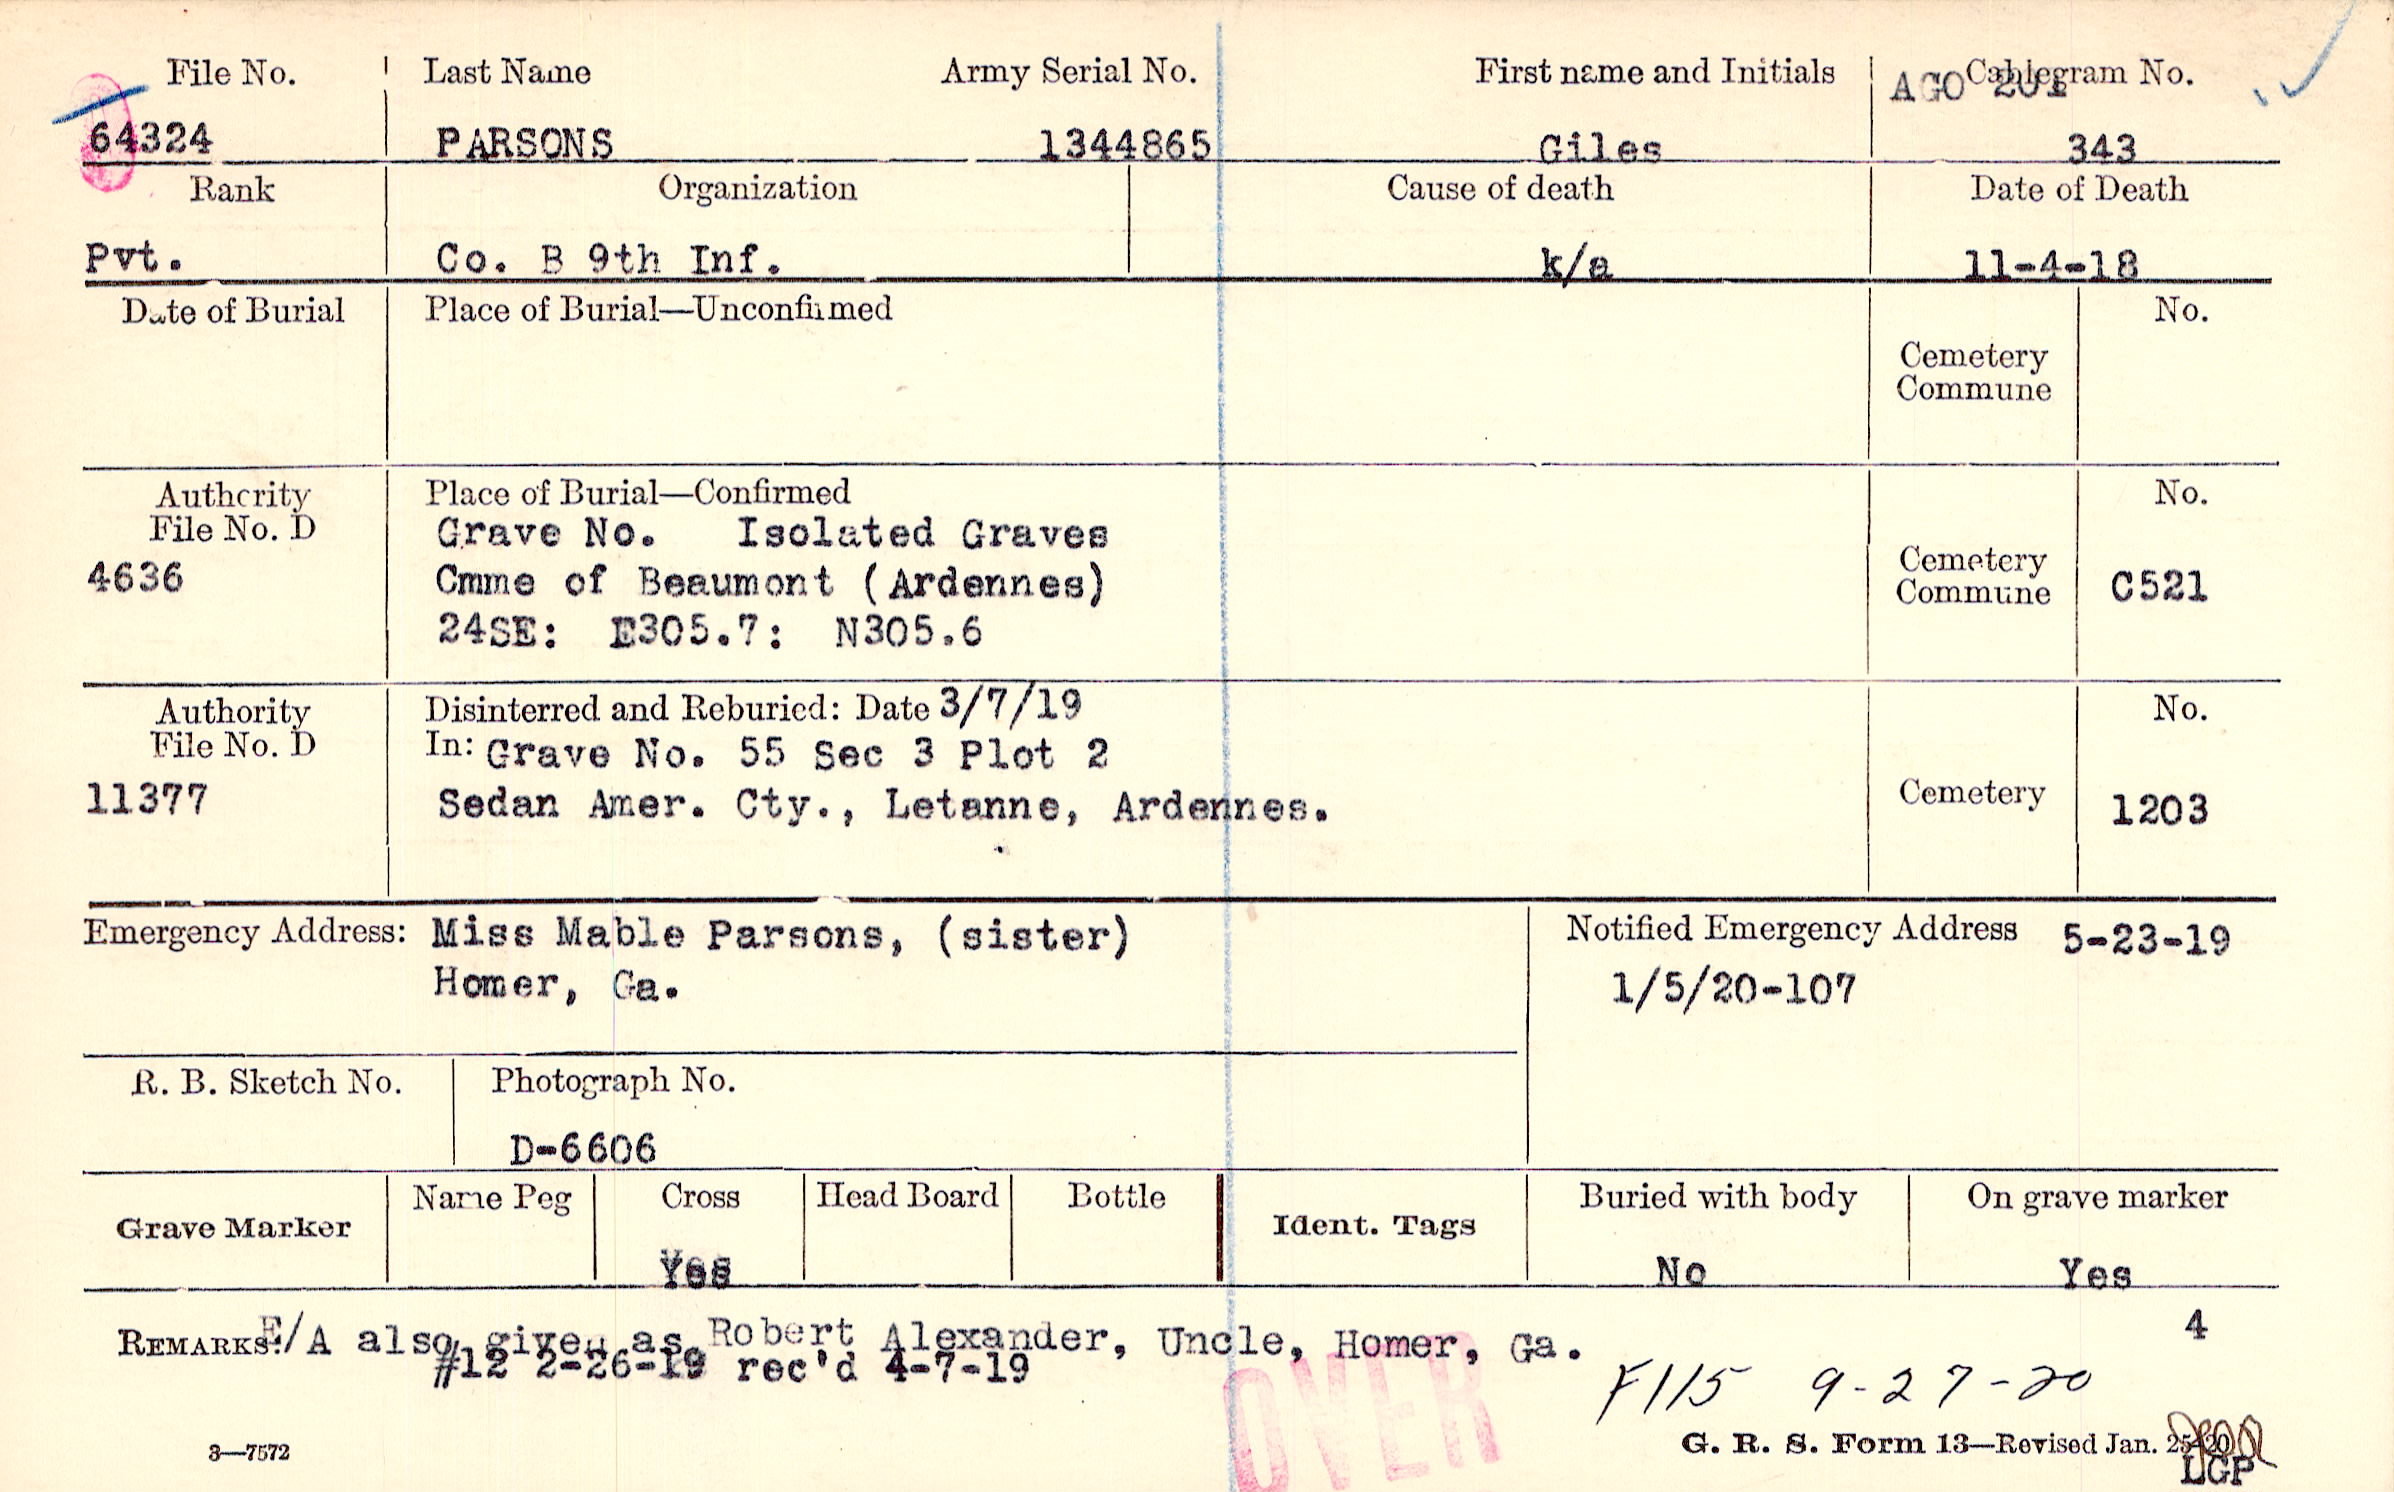 File No. Last Name Army Serial No. First name and Initials Cablegram No.
AGO 201
64324 PARSONS 1344865 Giles 343
Rank Organization Cause of death Date of Death
Pvt. Co. B 9th Inf. k/a 11-4-18
Date of Burial Place of Burial—Unconfirmed No.
Cemetery
Commune
Authority Place of Burial—Confirmed No.
File No. D Grave No. Isolated Graves
4636 Cmme of Beaumont (Ardennes) Cemetery
Commune C521
24SE: E305.7: N305.6
Authority Disinterred and Reburied: Date 3/7/19 No.
File No. D In: Grave No. 55 Sec 3 Plot 2
11377 Sedan Amer. Cty., Letanne, Ardennes. Cemetery 1203
Emergency Address: Miss Mable Parsons, (sister) Notified Emergency Address 5-23-19
Homer, Ga. 1/5/20-107
R. B. Sketch No. Photograph No.
D-6606
Grave Marker Name Peg Cross Head Board Bottle Ident. Tags Buried with body On grave marker
Yes No Yes
REMARKS: E/A also given as Robert Alexander, Uncle, Homer, Ga. 4
#12 2-26-19 rec'd 4-7-19
F115 9-27-20
OVER
3—7572 G. R. S. Form 13—Revised Jan. 25-20
LGP